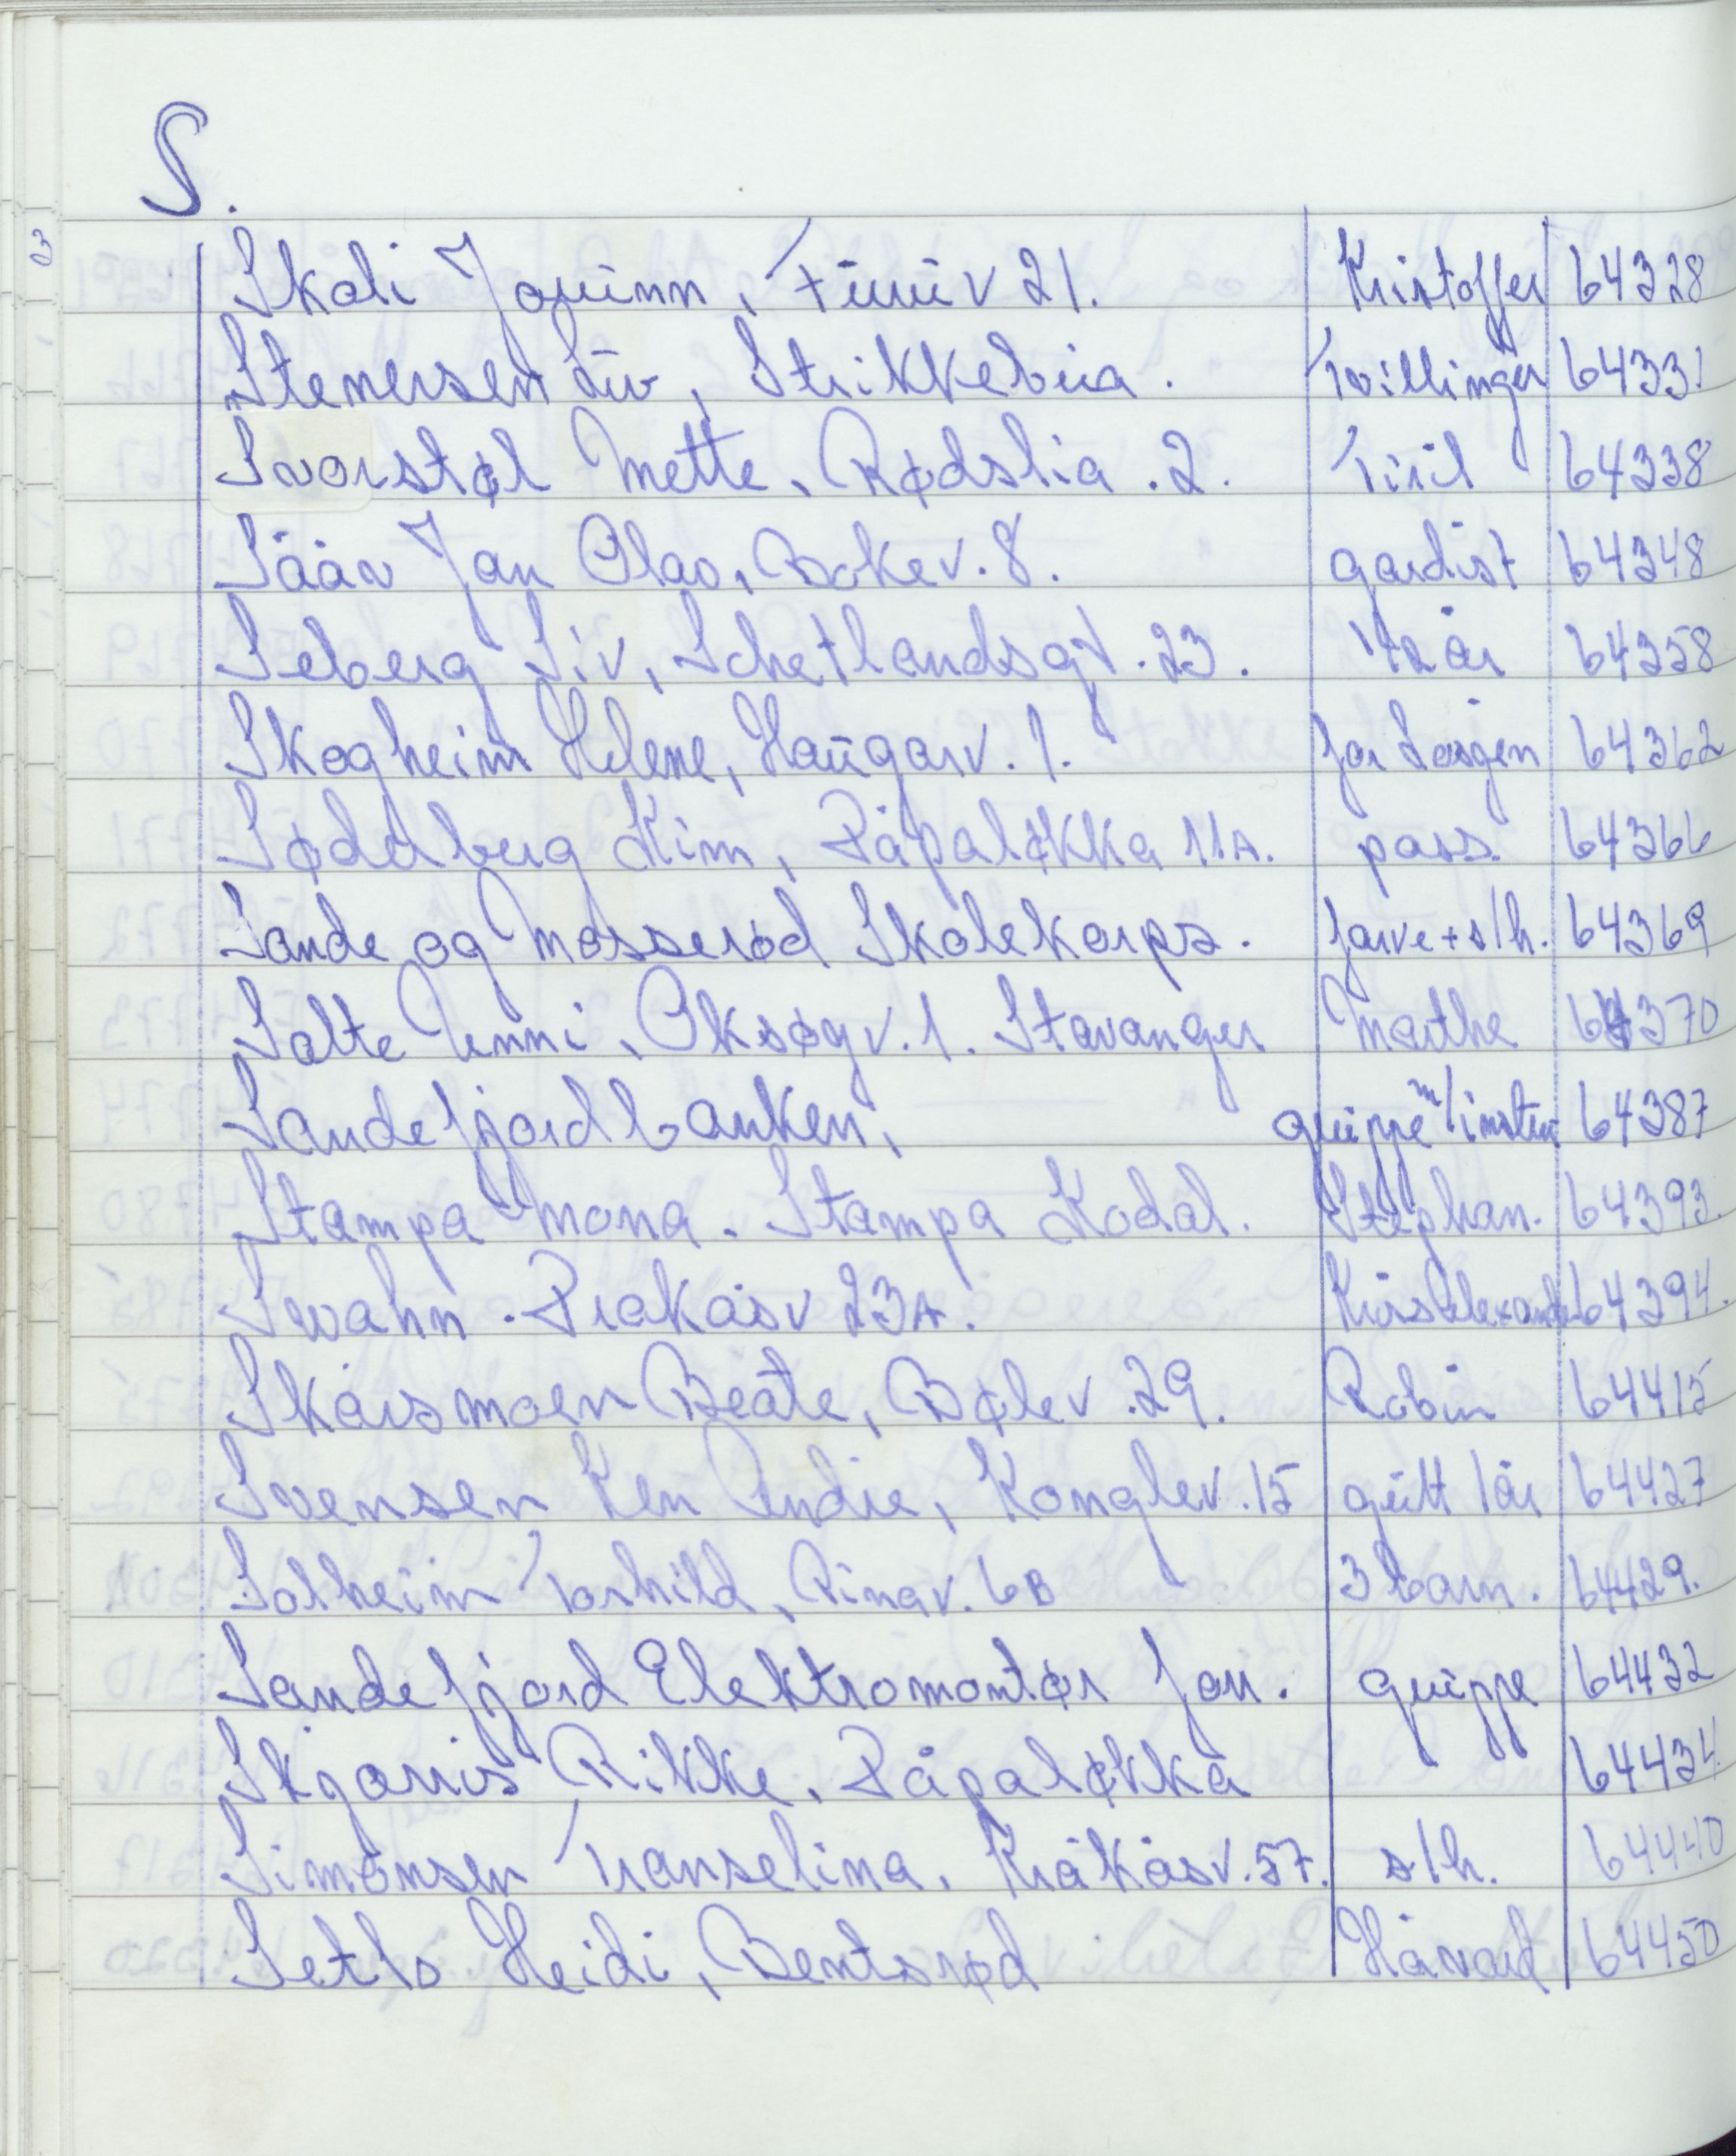 S.
Skoli Jorunn, Furuv 21. Kristoffer 64328
Stenersen Liv, Strikkebua. Tvillinger 64331
Svorstøl Mette, Rødslia. 2. Tiril 64338
Sääv Jan Olav, Bokev. 8. gardist 64348
Seberg Siv, Schetlandsgt. 23. 1/2 år 64358
Skogheim Helene, Haugarv. 1. 64362
Søderberg Kim, Påpaløkka 11A. pass. 64366
Sande og Mosserød Skolekorps. farve + s/h. 64369
Salte Unni, Oksøyv. 1. Stavanger Marthe 64370
Sandefjordbanken, gruppe m/ 64387
Stampa Mona. Stampa Kodal. Stephan. 64393.
Swahn. Kråkåsv 23A. 64394.
Skarsmoen Beate, Bølev. 29. Robin 64415
Svensen Ken Andre, Konglev. 15 gutt 1 år 64427
Solheim Torhild, Ringv. 6B 3 barn. 64429.
Sandefjord Elektromontør for. gruppe 64432
Rikke, Påpaløkka 64434
Simonsen Transelina, Kråkåsv. 57. s/h. 64440
Heidi, Bentsrød Håvard 64450